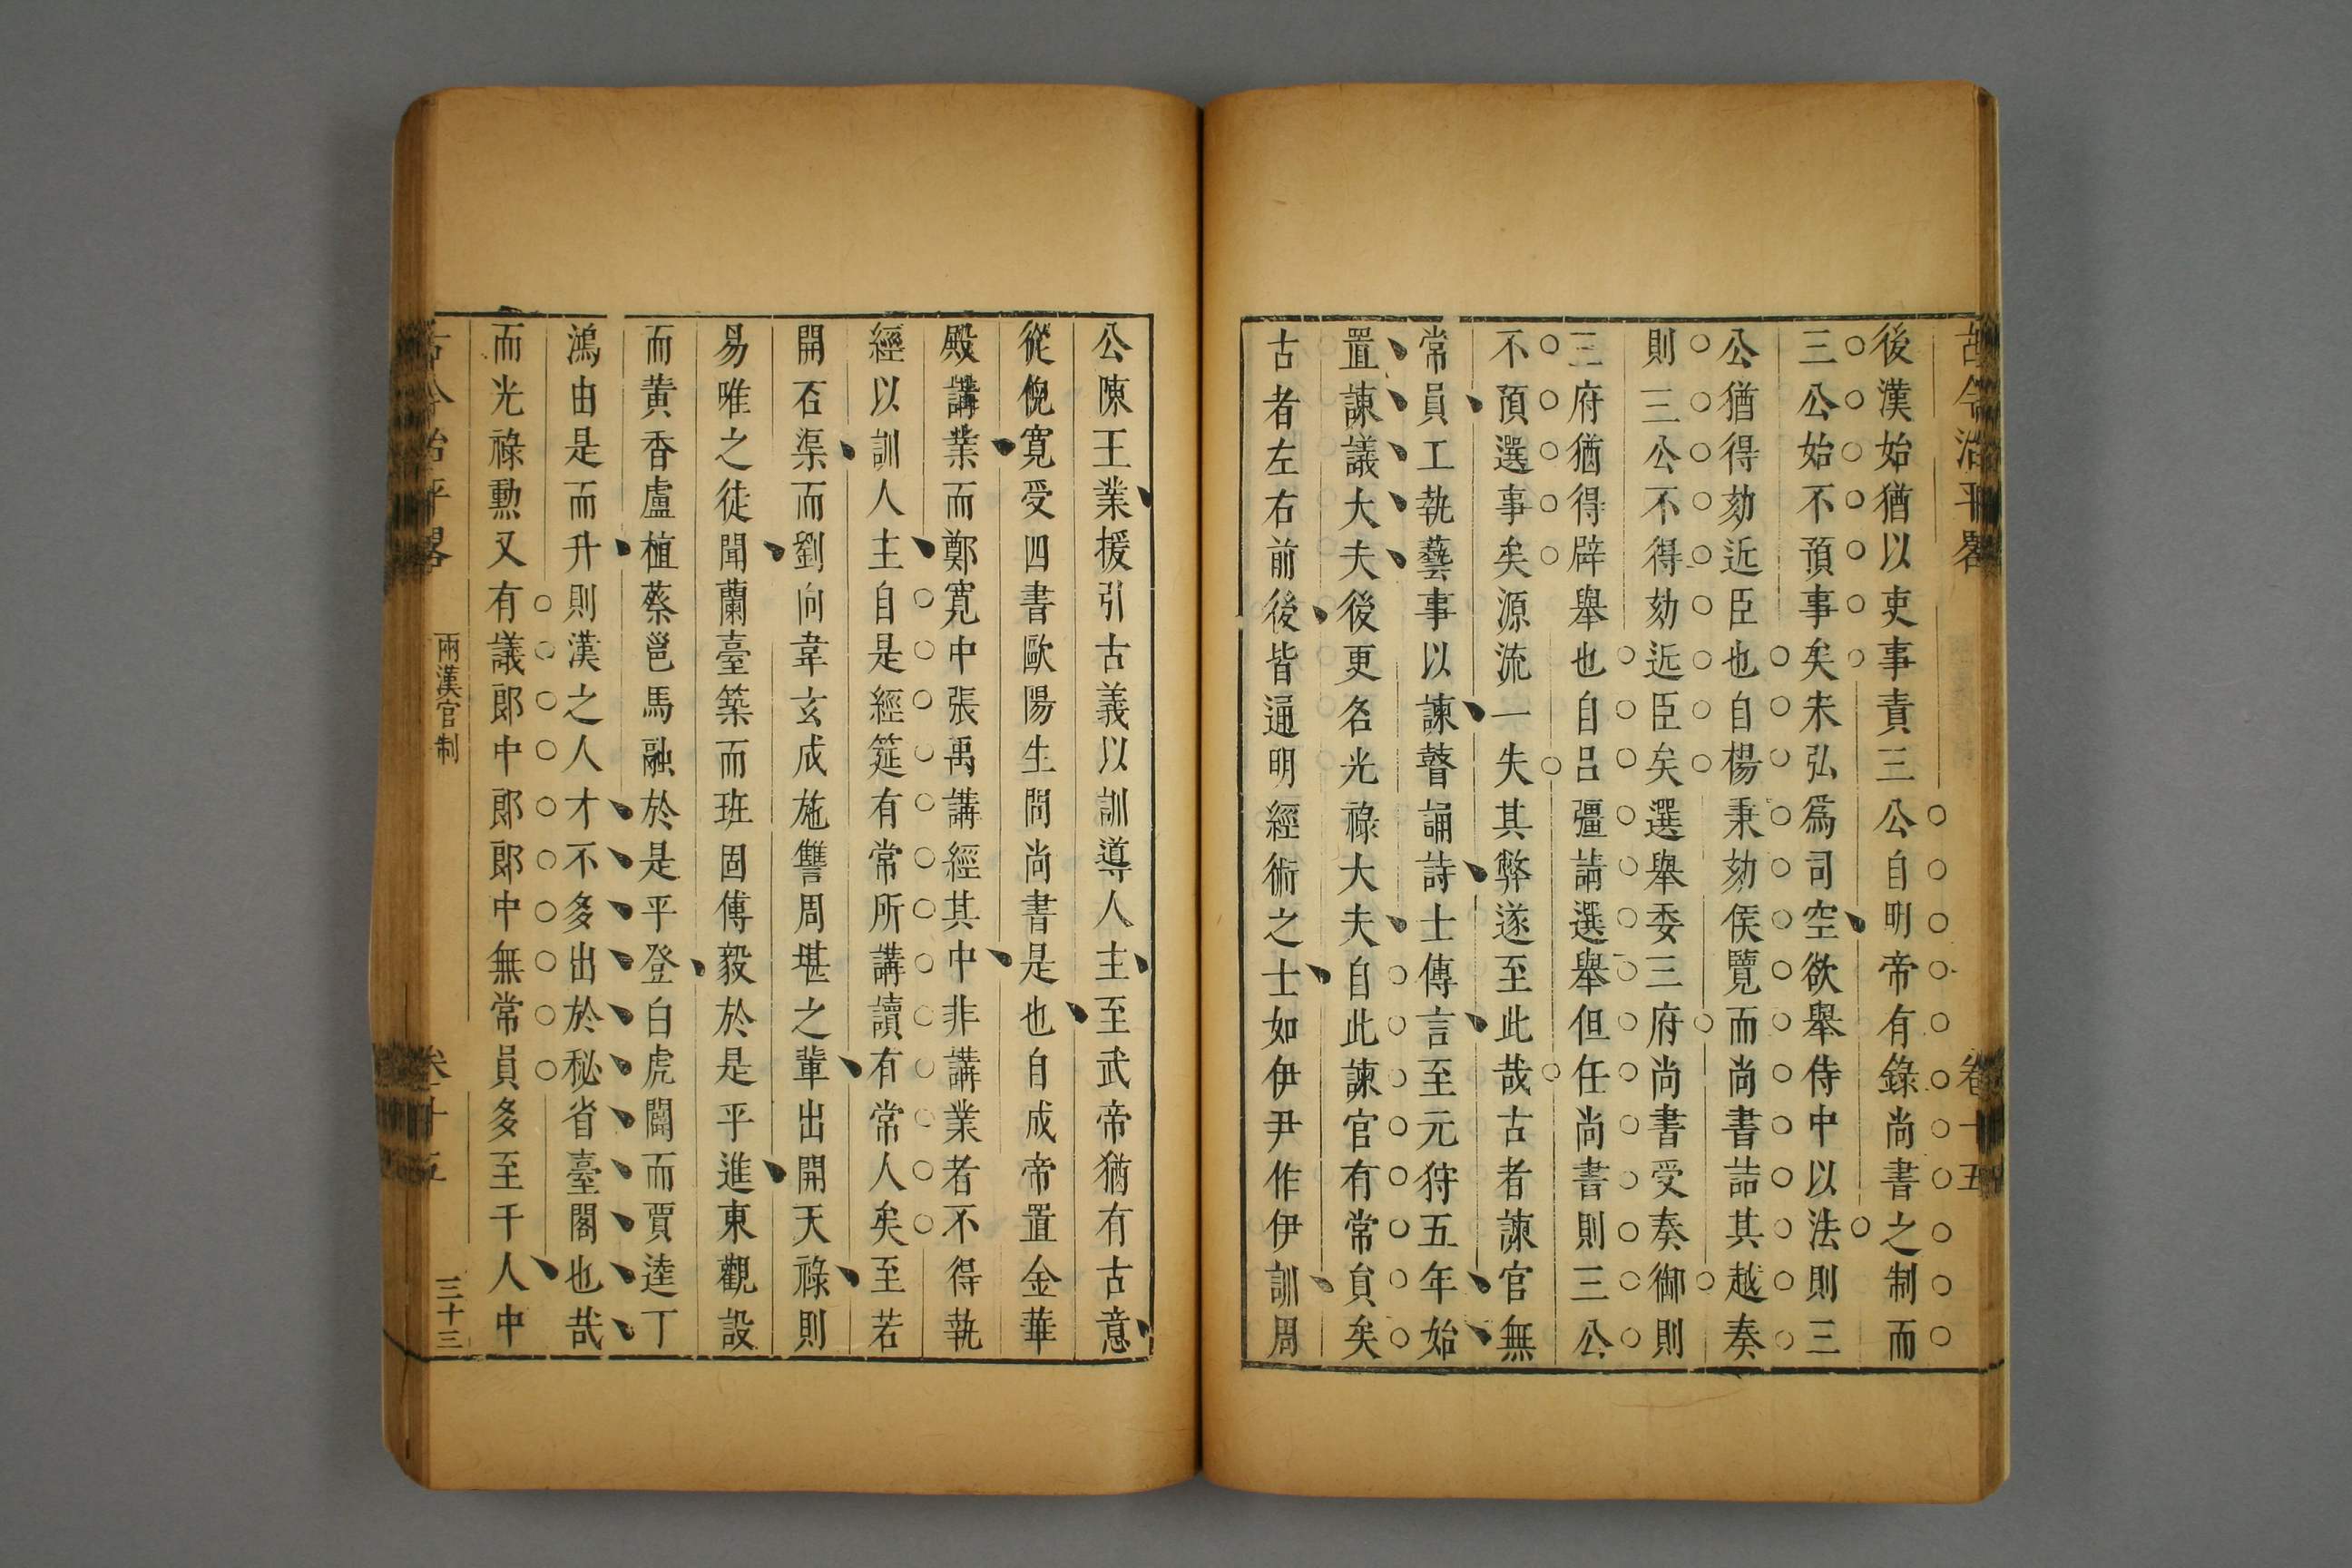 古今治平畧 卷十五
後漢始猶以吏事責三公自明帝有錄尚書之制而
三公始不預事矣朱弘爲司空欲舉侍中以法則三
公猶得劾近臣也自楊秉劾侯覽而尚書詰其越奏
則三公不得劾近臣矣選舉委三府尚書受奏御則
三府猶得辟舉也自呂彊請選舉但任尚書則三公
不預選事矣源流一失其弊遂至此哉古者諫官無
常員工執藝事以諫瞽誦詩士傳言至元狩五年始
置諫議大夫後更名光祿大夫自此諫官有常員矣
古者左右前後皆通明經術之士如伊尹作伊訓周
公陳王業援引古義以訓導人主至武帝猶有古意
從倪寬受四書歐陽生問尚書是也自成帝置金華
殿講業而鄭寬中張禹講經其中非講業者不得執
經以訓人主自是經筵有常所講讀有常人矣至若
開石渠而劉向韋玄成施讐周堪之輩出開天祿則
易唯之徒聞蘭臺築而班固傅毅於是乎進東觀設
而黃香盧植蔡邕馬融於是乎登白虎闢而賈逵丁
鴻由是而升則漢之人才不多出於秘省臺閣也哉
而光祿勳又有議郎中郎郎中無常員多至千人中
古今治平畧 兩漢官制 卷十五 三十三